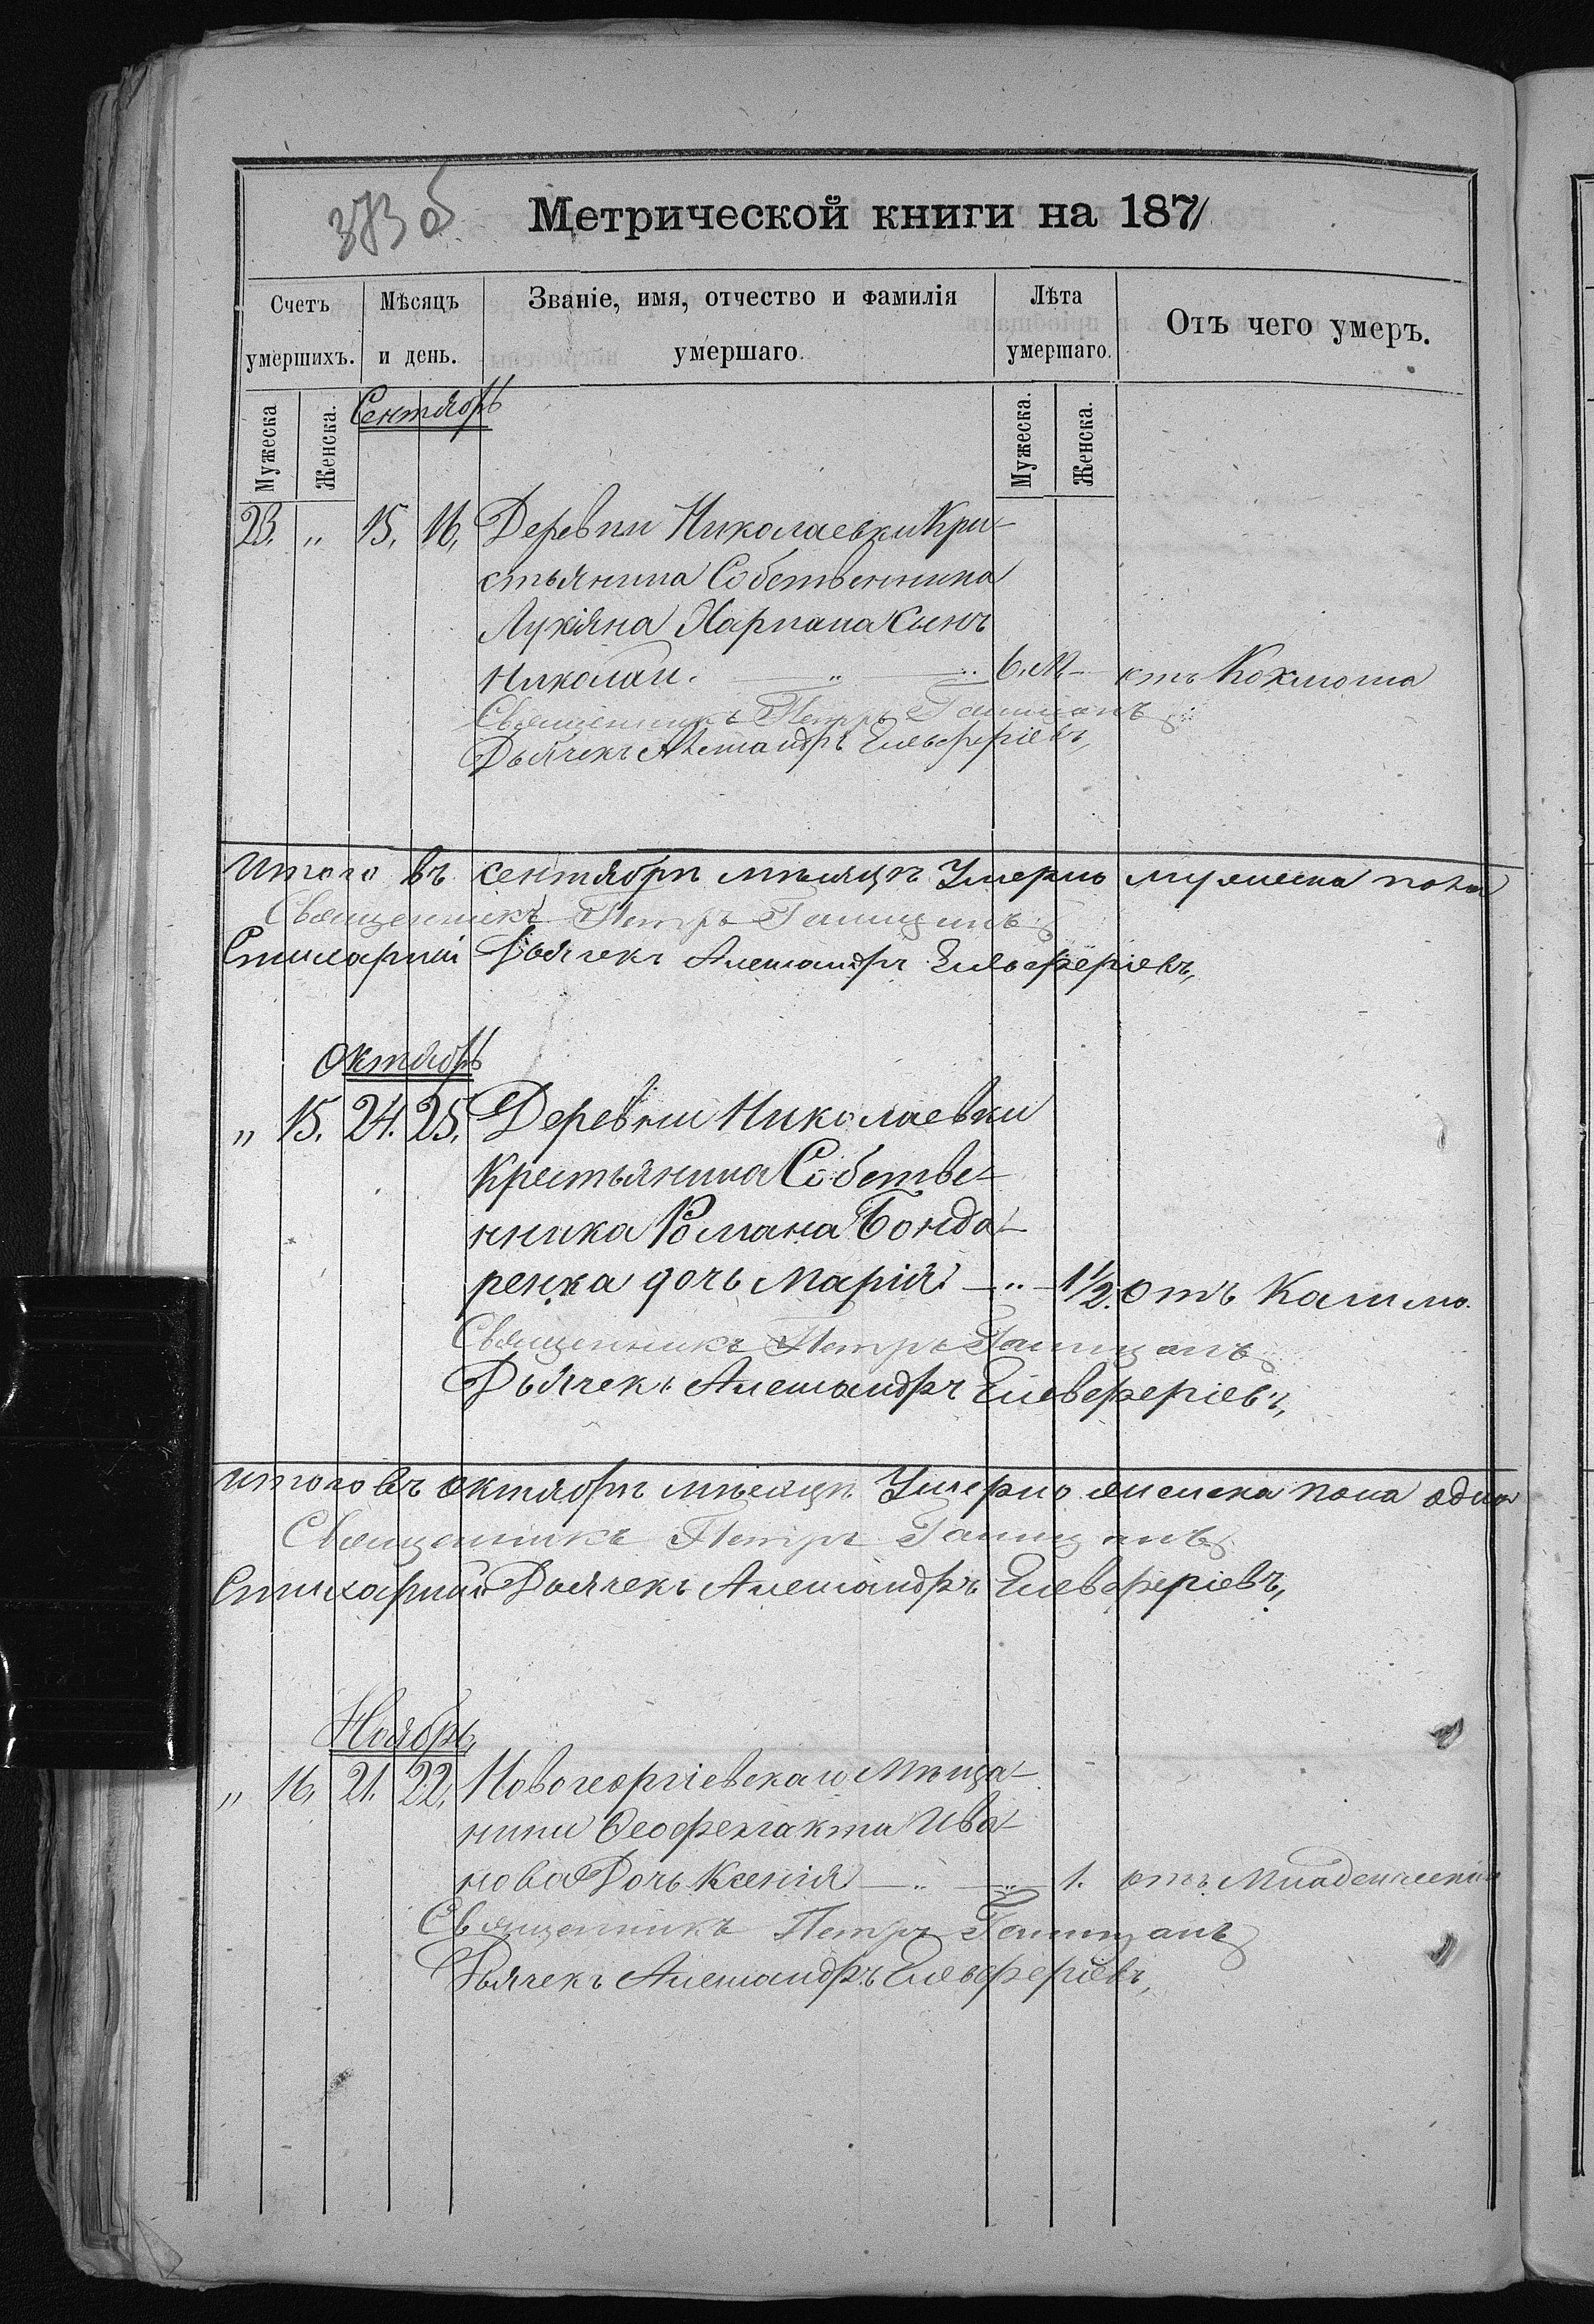 373 об
Метрической книги на 1871
Счетъ умершихъ.
Мѣсяцъ и день.
Званіе, имя, отчество и фамилія умершаго.
Лѣта умершаго.
Отъ чего умеръ.
Мужеска
Женска.
Мужеска.
Женска.
Сентябрь
23. „ 15. 16. Деревни Николаевки Кри-
стьянина Собственника
Лукіяна Харпана Сынъ
Николай. 6. м. отъ Коклюша
Священникъ Петръ
Дьячекъ Александръ Елевферіевъ,
Итого въ сентябрѣ мѣсяцѣ Умерло мужеска пола
Священникъ Петръ
Стихарный Дьячекъ Александръ Елевферіевъ,
Октябрь
„ 15. 24. 25. Деревни Николаевки
Крестьянина Собстве-
нника Романа Бонда-
ренка дочь Марія 1½. отъ Кашлю.
Священникъ Петръ
Дьячекъ Александръ Елевферіевъ,
Итого въ октябрѣ мѣсяцѣ Умерло женска пола одна
Священникъ Петръ
Стихарный Дьячекъ Александръ Елевферіевъ,
Ноябрь,
„ 16. 21. 22. Новогеоргіевскаго Мѣща-
нина Феофелакта Ива-
нова Дочь Ксенія 1. отъ
Священникъ Петръ
Дьячекъ Александръ Елевферіевъ,